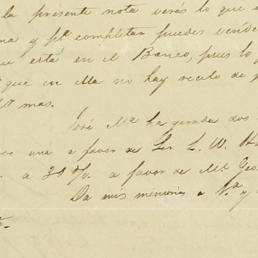 la presente nota verás lo que
na y pa. completar puedes vende
que está en el Banco, pues lo
que en ella no hay recelo de
mas.
José Ma. ha girado dos
una a favor de Ler L. W.
a 30 d/. a favor de Mr. Geo
Da mis memorias a